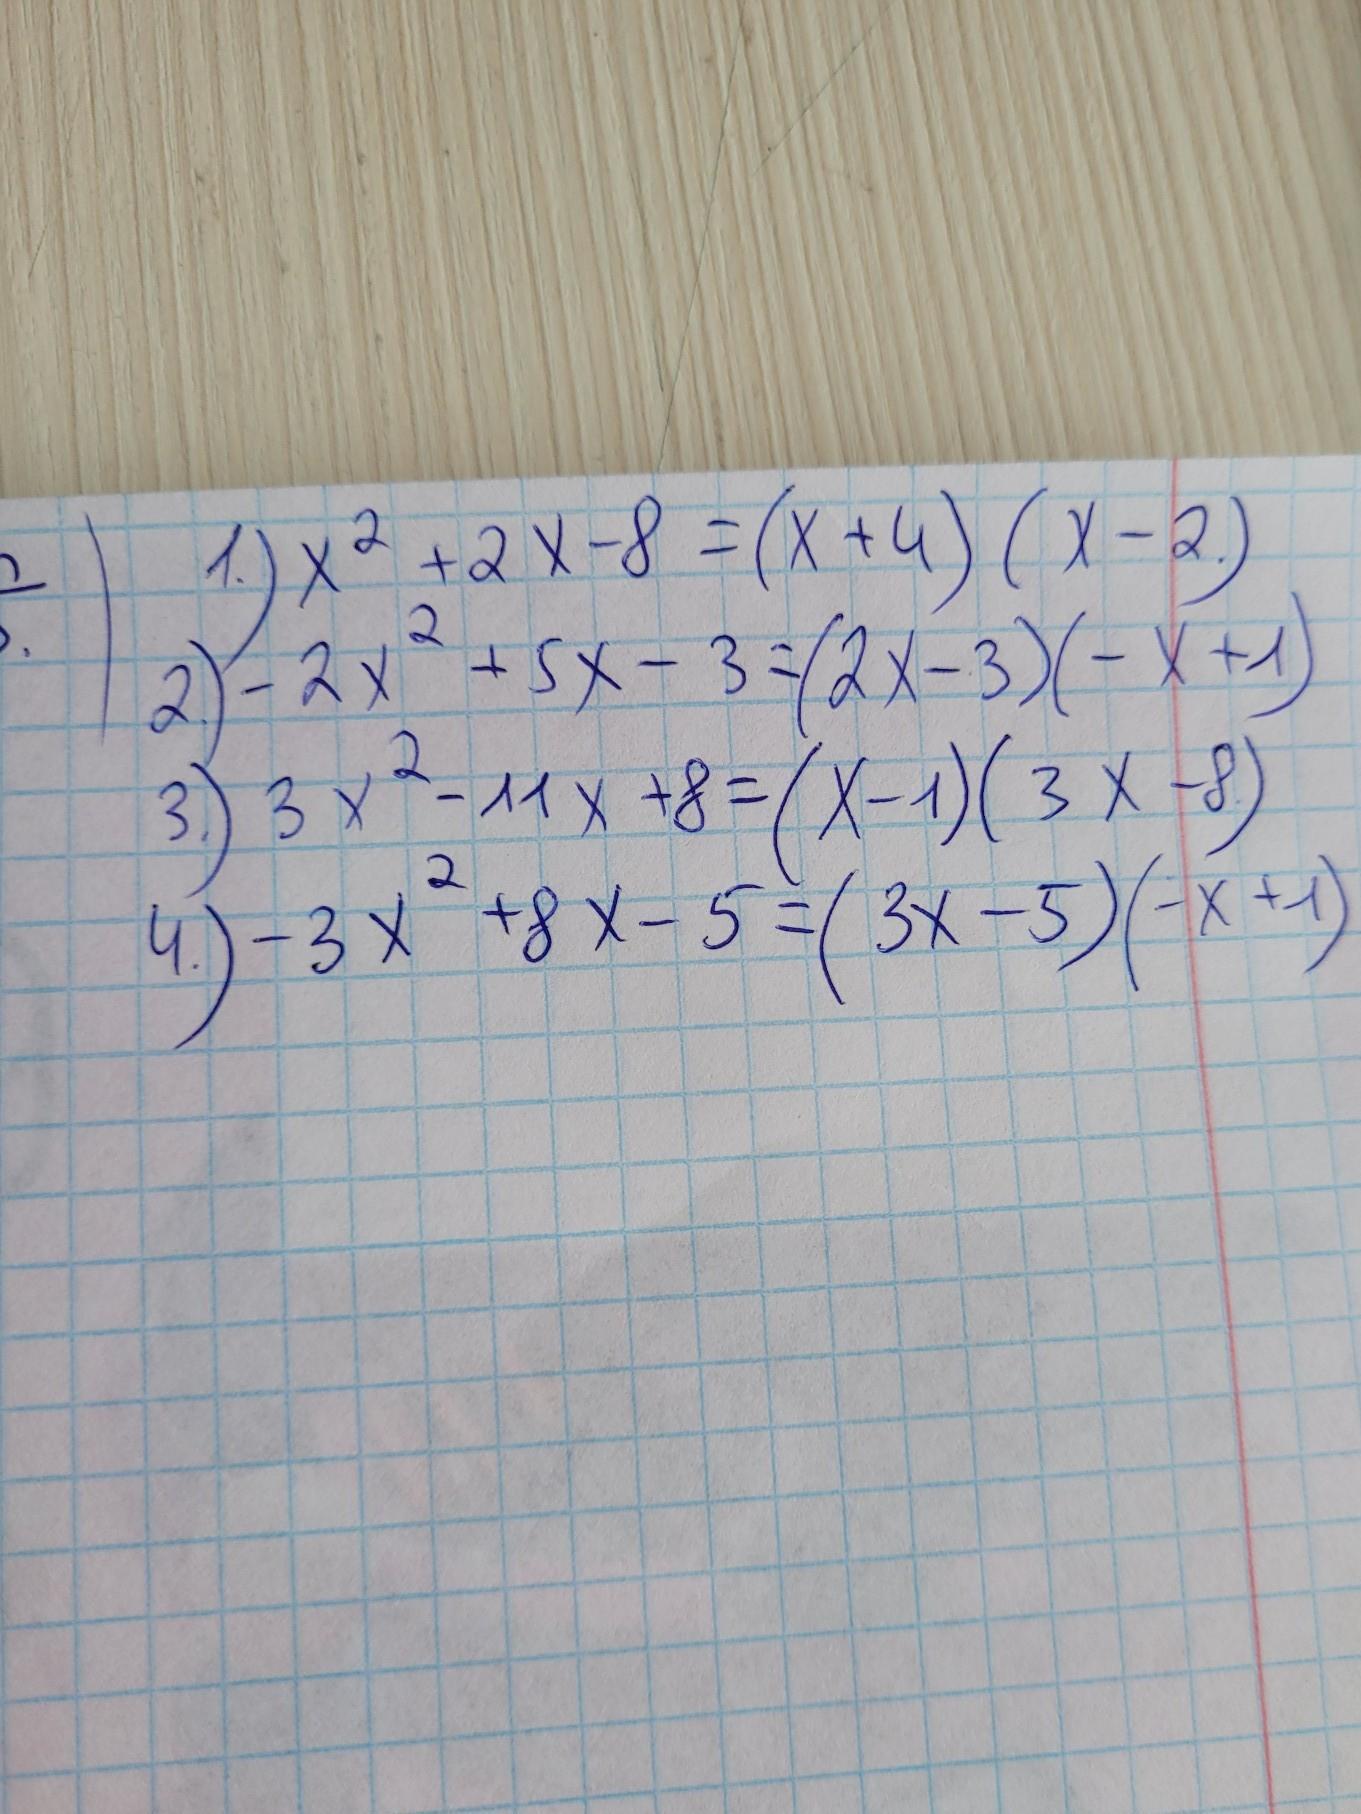 1.) x² + 2x - 8 = (x + 4) (x - 2)
2.) - 2x² + 5x - 3 = (2x - 3)(- x + 1)
3.) 3x² - 11x + 8 = (x - 1)(3x - 8)
4.) - 3x² + 8x - 5 = (3x - 5)(- x + 1)